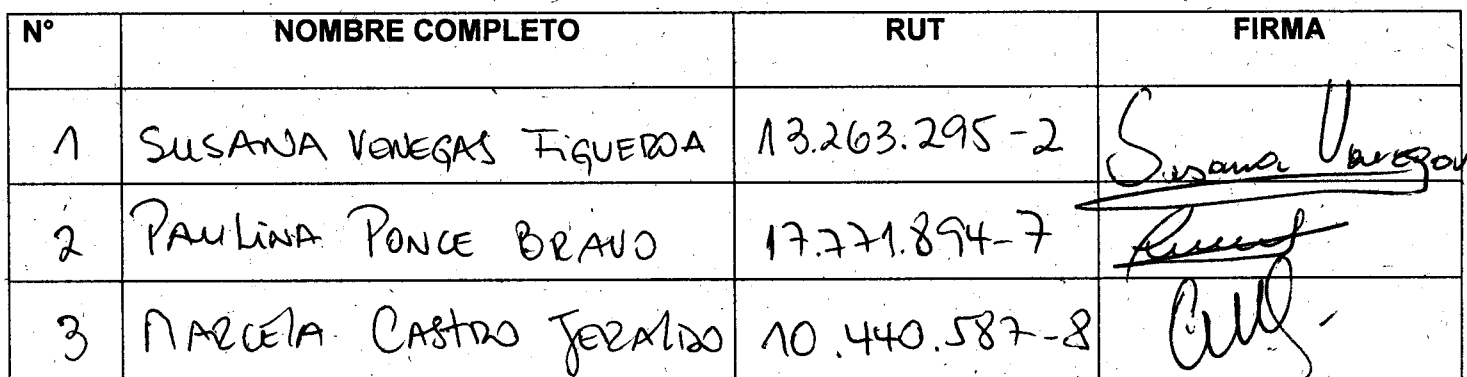 N° NOMBRE COMPLETO RUT FIRMA
1 SUSANA VENEGAS FIGUEROA 13.263.295-2 Susana Venegas
2 PAULINA PONCE BRAVO 17.771.894-7
3 MARCELA CASTRO JERALDO 10.440.587-8